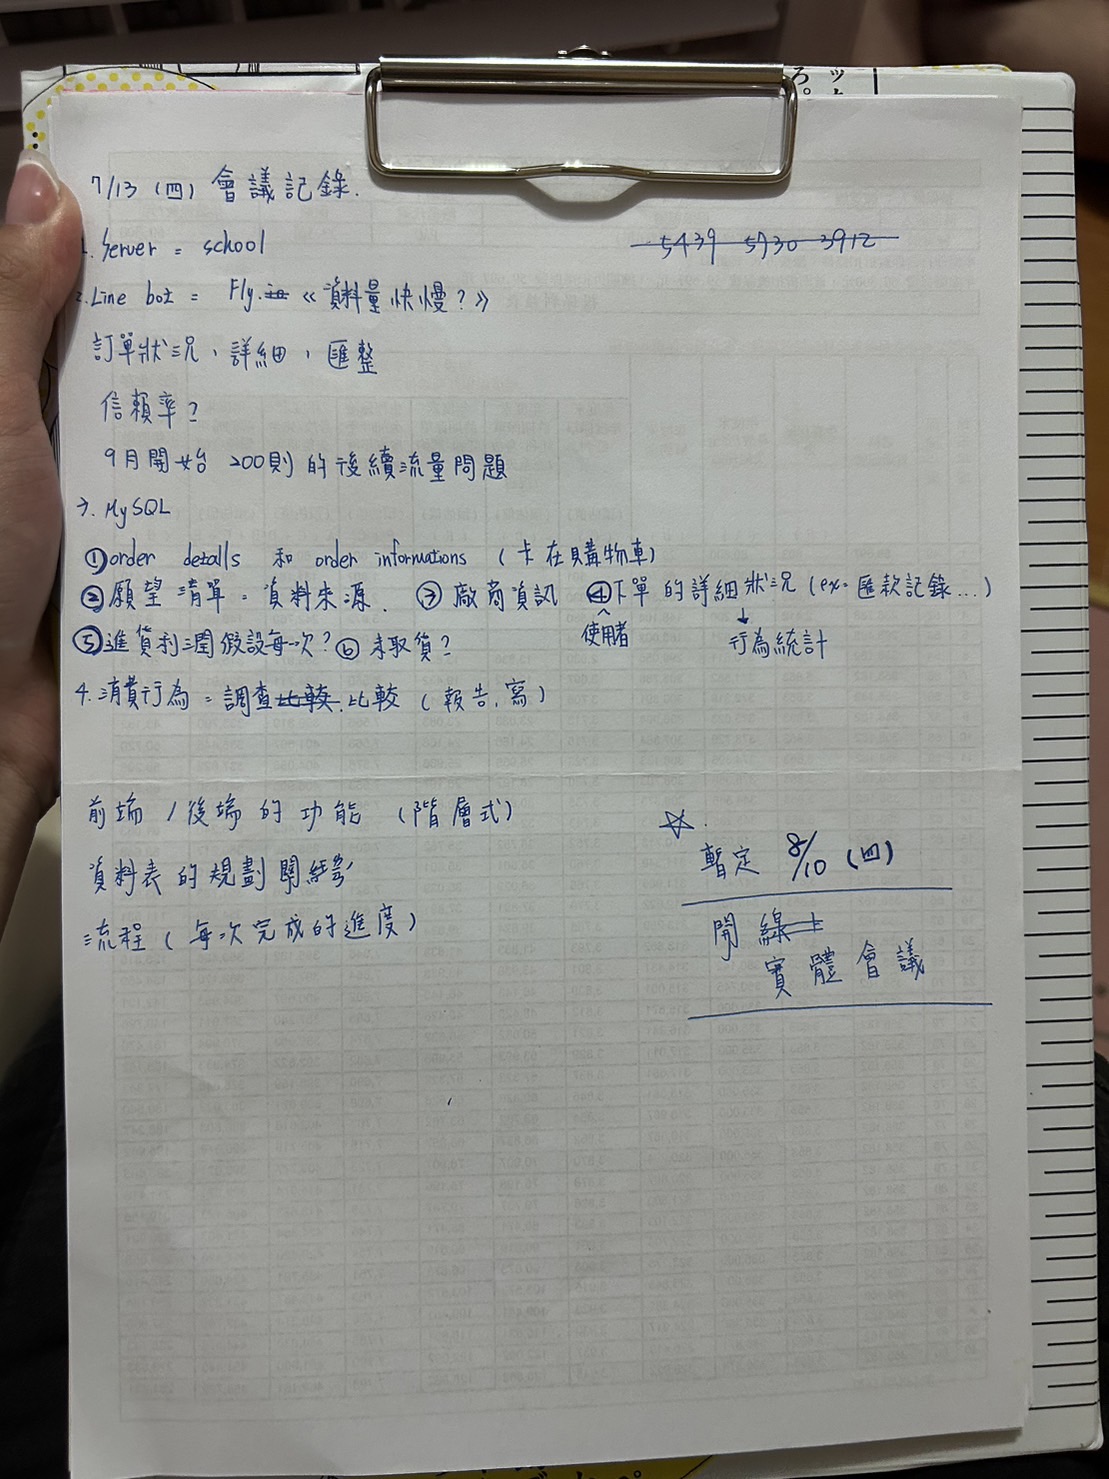 7/13 (四) 會議記錄.
5439 5730 3912
1. Server = school
2. Line bot = Fly.io 《資料量快慢?》
訂單狀況、詳細、匯整
信賴率?
9月開始 200則的後續流量問題
3. MySQL
①order details 和 order informations (卡在購物車)
②願望清單=資料來源. ③廠商資訊 ④下單的詳細狀況(ex. 匯款記錄...)
使用者 ↓行為統計
⑤進貨利潤假設每一次? ⑥未取貨?
4. 消費行為=調查比較.比較 (報告.寫)
前端/後端的功能 (階層式)
資料表的規劃關聯
流程(每次完成的進度)
☆.
暫定 8/10 (四)
開線上
實體會議